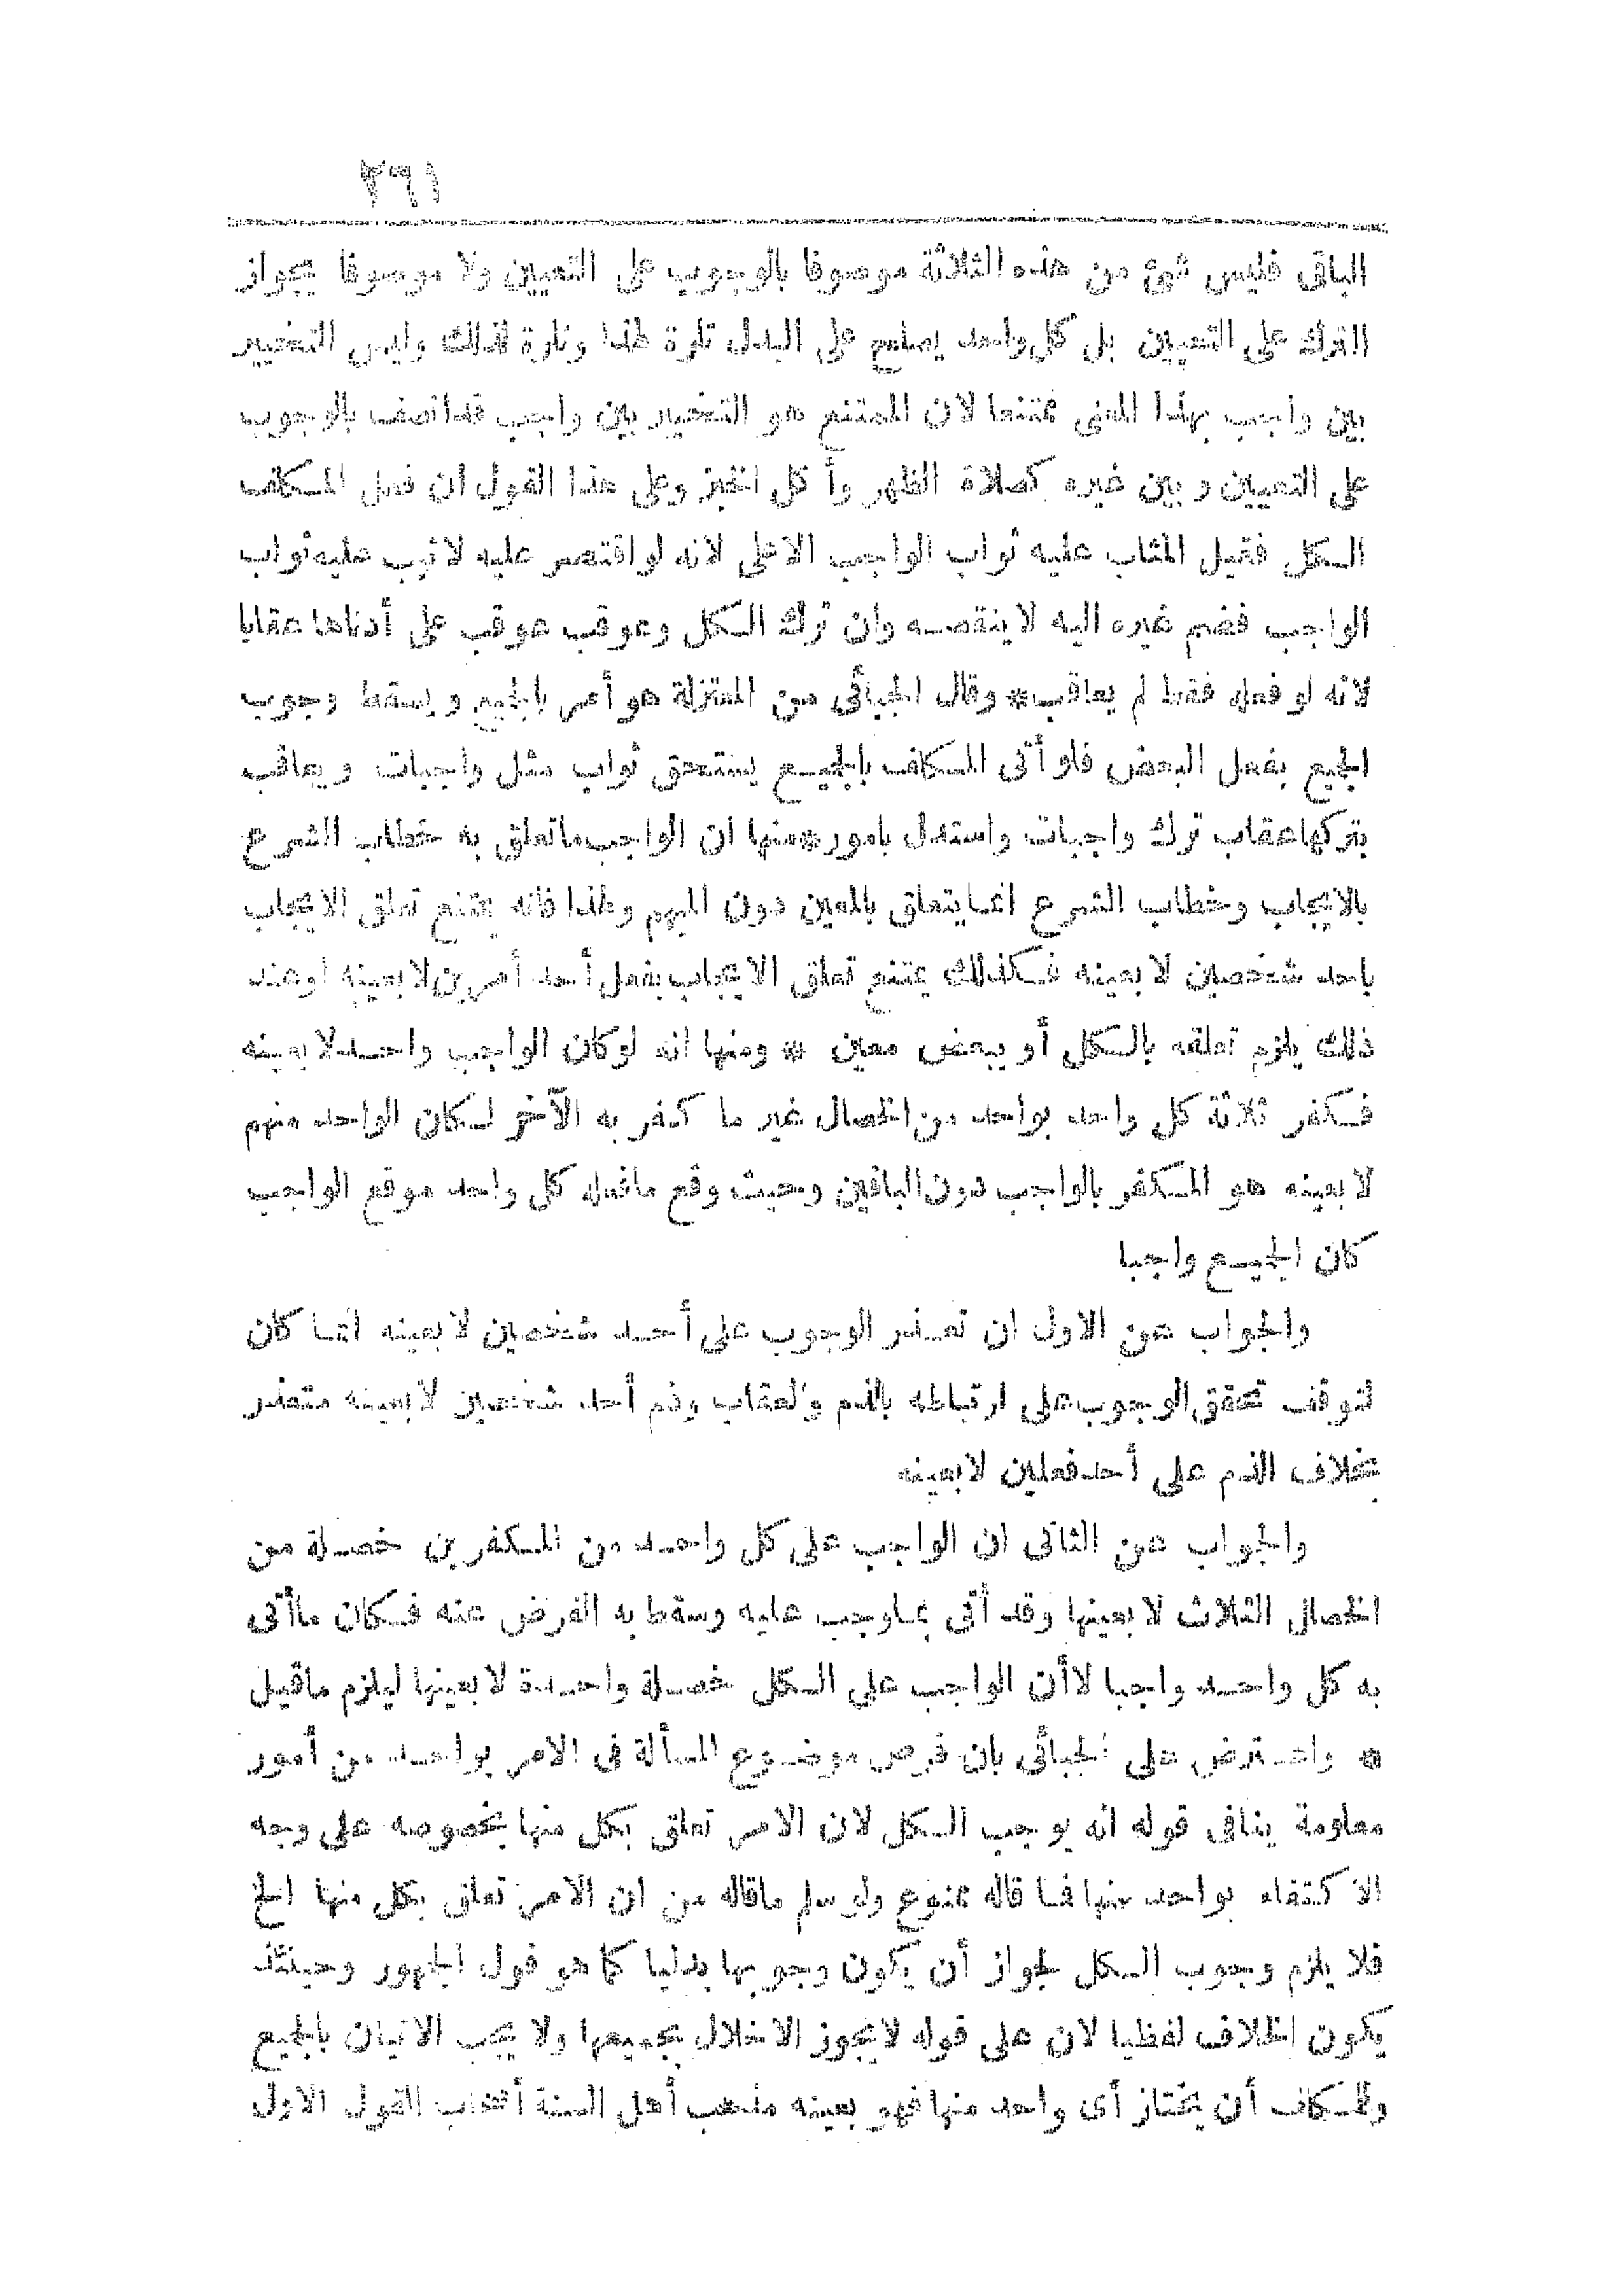 ٣٦١
الباقى فليس شئ من هذه الثلاثة موصوفا بالوجوب على التعيين ولا موصوفا بجواز
الترك على التعيين بل كل واحد يصلح على البدل تارة لهذا وتارة لذلك وليس التخيير
بين واجب بهذا المعنى ممتنعا لان الممتنع هو التخيير بين واجب قد اتصف بالوجوب
على التعيين وبين غيره كصلاة الظهر وأكل الخبز وعلى هذا القول ان فعل المكلف
الكل فقيل المثاب عليه ثواب الواجب الاعلى لانه لو اقتصر عليه لاثيب عليه ثواب
الواجب فضم غيره اليه لا ينقصه وان ترك الكل وعوقب عوقب على أدناها عقابا
لانه لو فعله فقط لم يعاقب * وقال الجبائى من المعتزلة هو أمر بالجميع ويسقط وجوب
الجميع بفعل البعض فلو أتى المكلف بالجميع يستحق ثواب مثل واجبات ويعاقب
بتركها عقاب ترك واجبات واستدل بامور * منها ان الواجب ما تعلق به خطاب الشرع
بالايجاب وخطاب الشرع انما يتعلق بالمعين دون المبهم ولهذا فانه يمتنع تعلق الايجاب
باحد شخصين لا بعينه فكذلك يمتنع تعلق الايجاب بفعل أحد أمرين لا بعينه اوعند
ذلك يلزم تعلقه بالكل أو ببعض معين * ومنها انه لو كان الواجب واحد لا بعينه
فكفر ثلاثة كل واحد بواحد من الخصال غير ما كفر به الآخر لكان الواحد منهم
لا بعينه هو المكفر بالواجب دون الباقين وحيث وقع ما فعله كل واحد موقع الواجب
كان الجميع واجبا
والجواب عن الاول ان تعذر الوجوب على أحد شخصين لا بعينه انما كان
لتوقف تحقق الوجوب على ارتباطه بالذم والعقاب وذم أحد شخصين لا بعينه متعذر
بخلاف الذم على أحد فعلين لا بعينه
والجواب عن الثانى ان الواجب على كل واحد من المكفرين خصلة من
الخصال الثلاث لا بعينها وقد أتى بما وجب عليه وسقط به الفرض عنه فكان ما أتى
به كل واحد واجبا لا أن الواجب على الكل خصلة واحدة لا بعينها ليلزم ما قيل
* واعترض على الجبائى بان فرض موضوع المسألة فى الامر بواحد من أمور
معلومة ينافى قوله انه يوجب الكل لان الامر تعلق بكل منها بخصوصه على وجه
الاكتفاء بواحد منها فما قاله ممنوع ولو سلم ما قاله من ان الامر تعلق بكل منها الخ
فلا يلزم وجوب الكل لجواز أن يكون وجوبها بدليا كما هو قول الجمهور وحينئذ
يكون الخلاف لفظيا لان على قوله لا يجوز الاخلال بجميعها ولا يجب الاتيان بالجميع
وللمكلف أن يختار أى واحد منها فهو بعينه مذهب أهل السنة أصحاب القول الاول